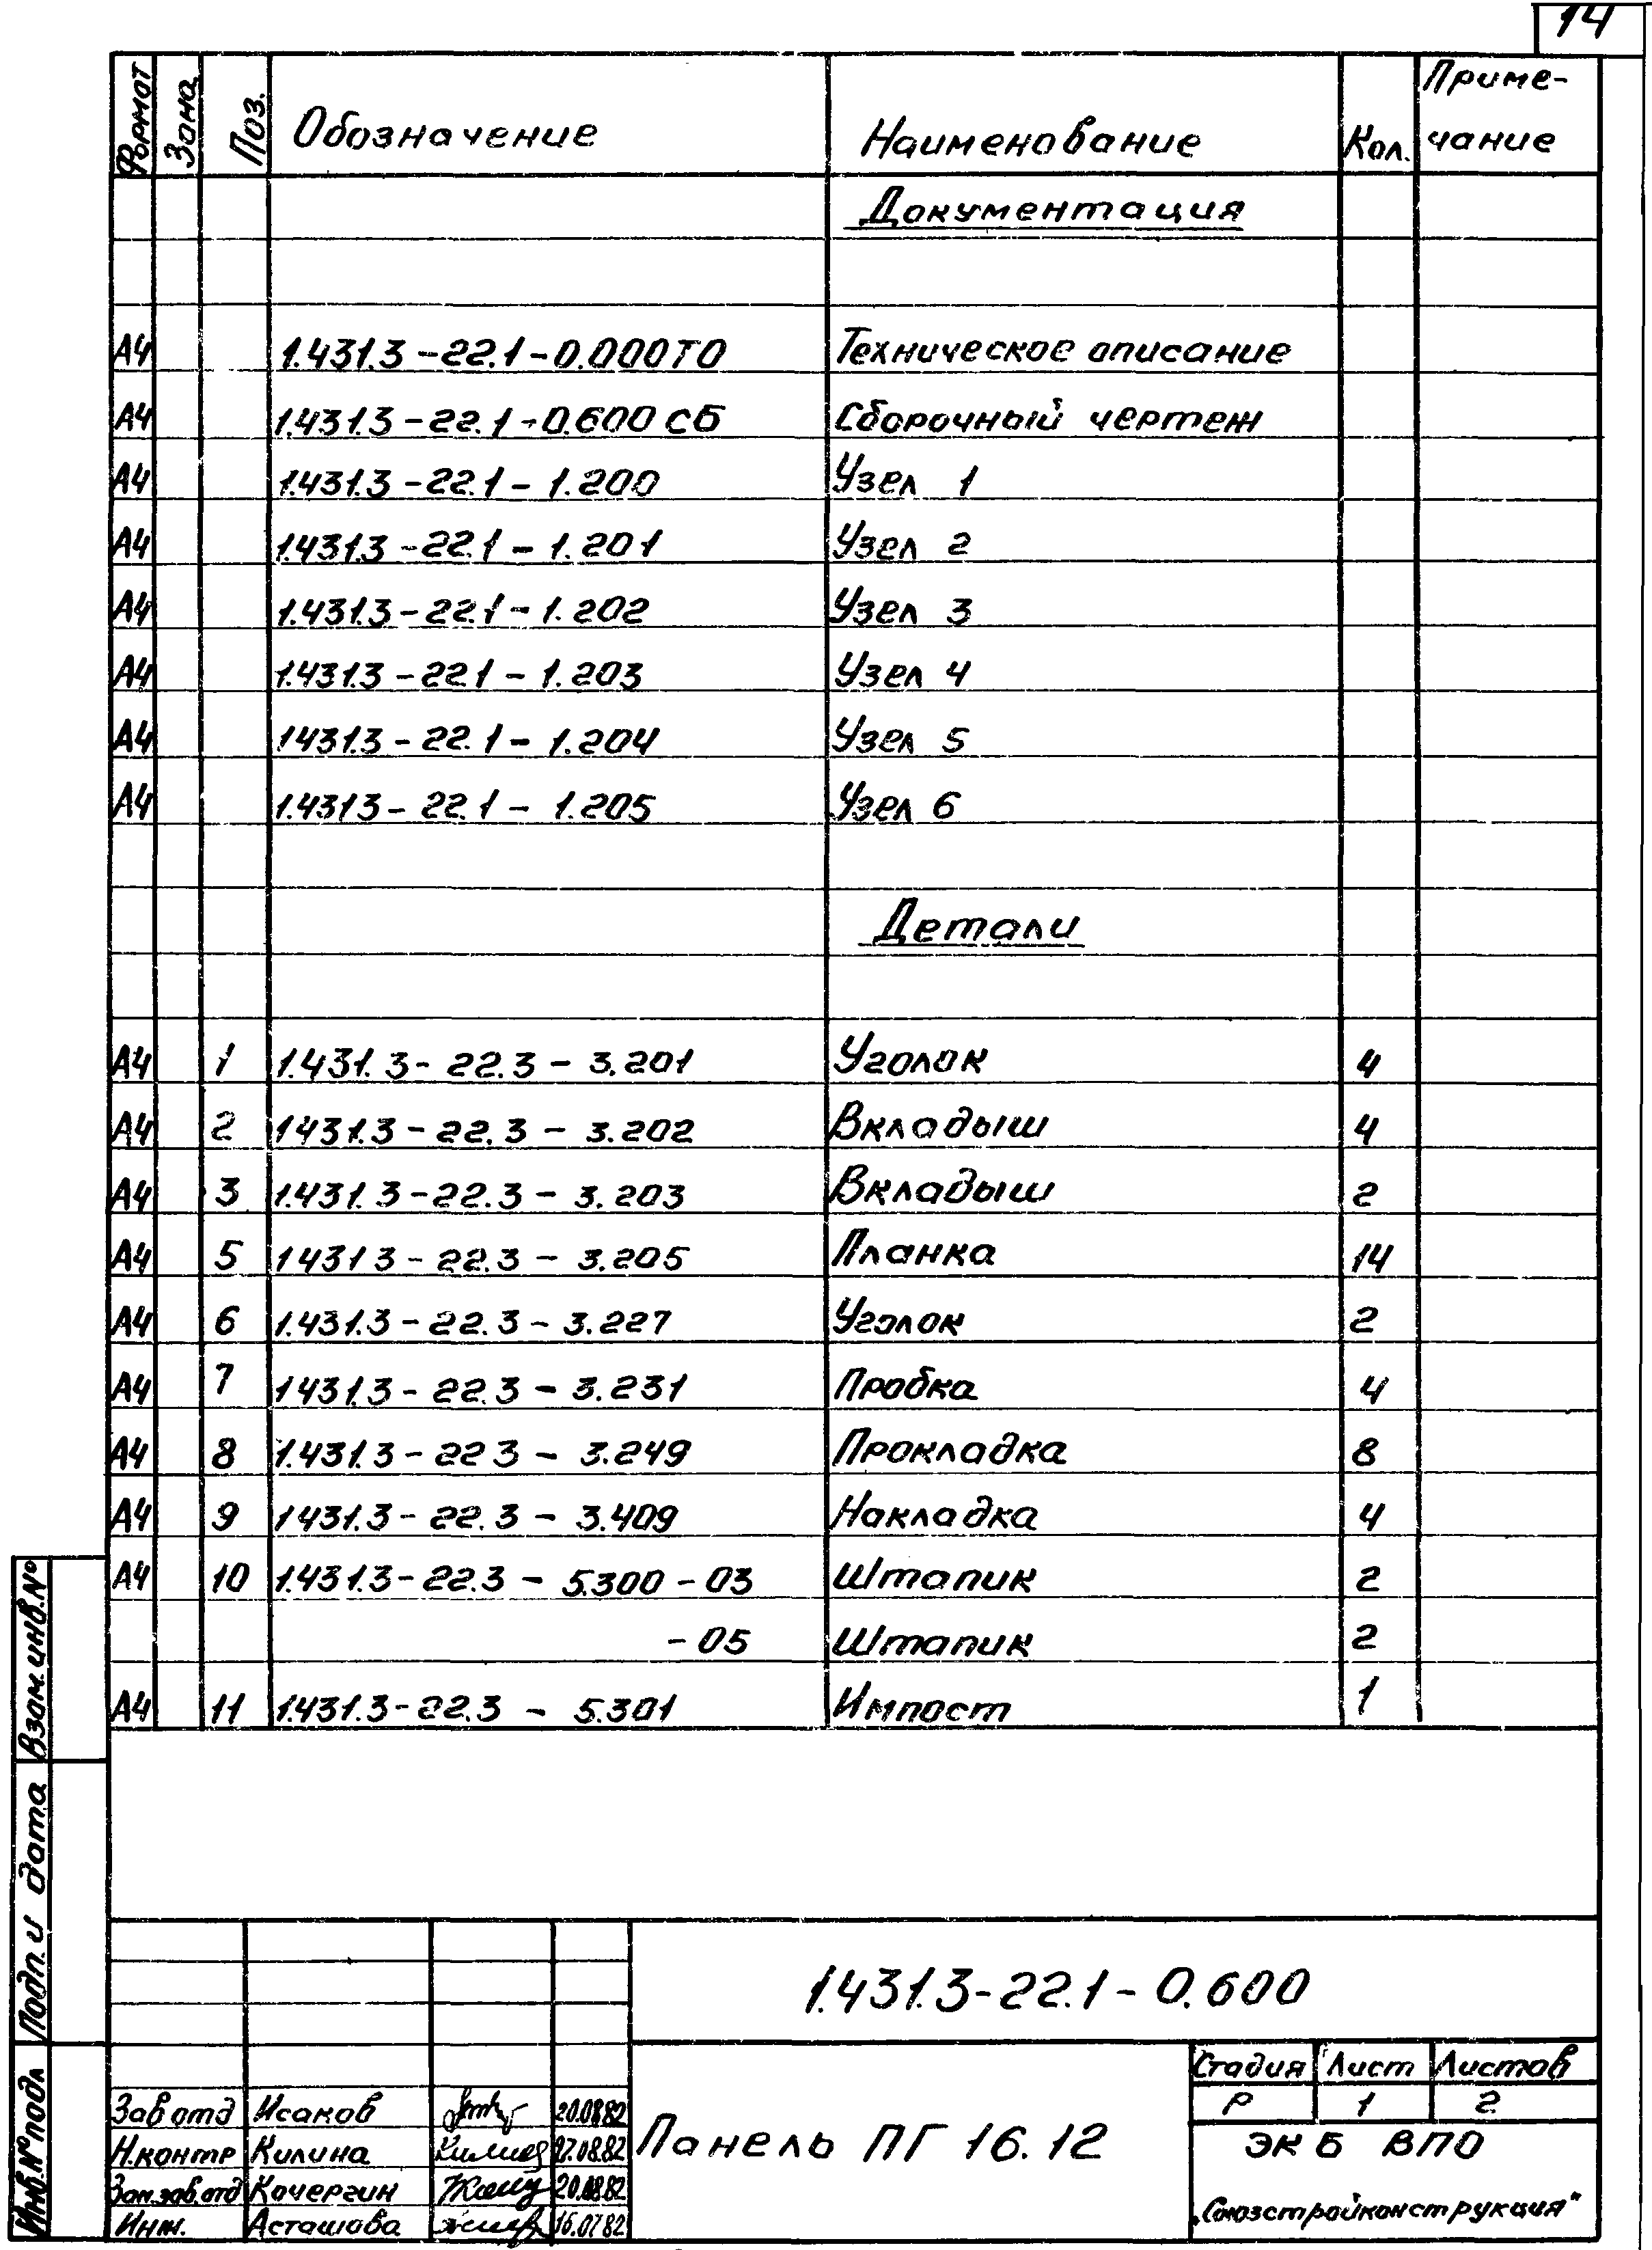 14
Формат Зона Поз. Обозначение Наименование Кол. Приме-
чание
Документация
А4 1.431.3-22.1-0.000ТО Техническое описание
А4 1.431.3-22.1-0.600 СБ Сборочный чертеж
А4 1.431.3-22.1-1.200 Узел 1
А4 1.431.3-22.1-1.201 Узел 2
А4 1.431.3-22.1-1.202 Узел 3
А4 1.431.3-22.1-1.203 Узел 4
А4 1.431.3-22.1-1.204 Узел 5
А4 1.431.3-22.1-1.205 Узел 6
Детали
А4 1 1.431.3-22.3-3.201 Уголок 4
А4 2 1.431.3-22.3-3.202 Вкладыш 4
А4 3 1.431.3-22.3-3.203 Вкладыш 2
А4 5 1.431.3-22.3-3.205 Планка 14
А4 6 1.431.3-22.3-3.227 Уголок 2
А4 7 1.431.3-22.3-3.231 Пробка 4
А4 8 1.431.3-22.3-3.249 Прокладка 8
А4 9 1.431.3-22.3-3.409 Накладка 4
А4 10 1.431.3-22.3-5.300-03 Штапик 2
-05 Штапик 2
А4 11 1.431.3-22.3-5.301 Импост 1
Взам.инв.№
Подп. и дата
Инв.№подл
1.431.3-22.1-0.600
Стадия Лист Листов
Р 1 2
Зав отд Исаков 20.08.82
Н.контр Килина 17.08.82
Зам.зав.отд Кочергин 20.08.82
Инж. Асташова 16.07.82
Панель ПГ 16.12
ЭКБ ВПО
„Союзстройконструкция"